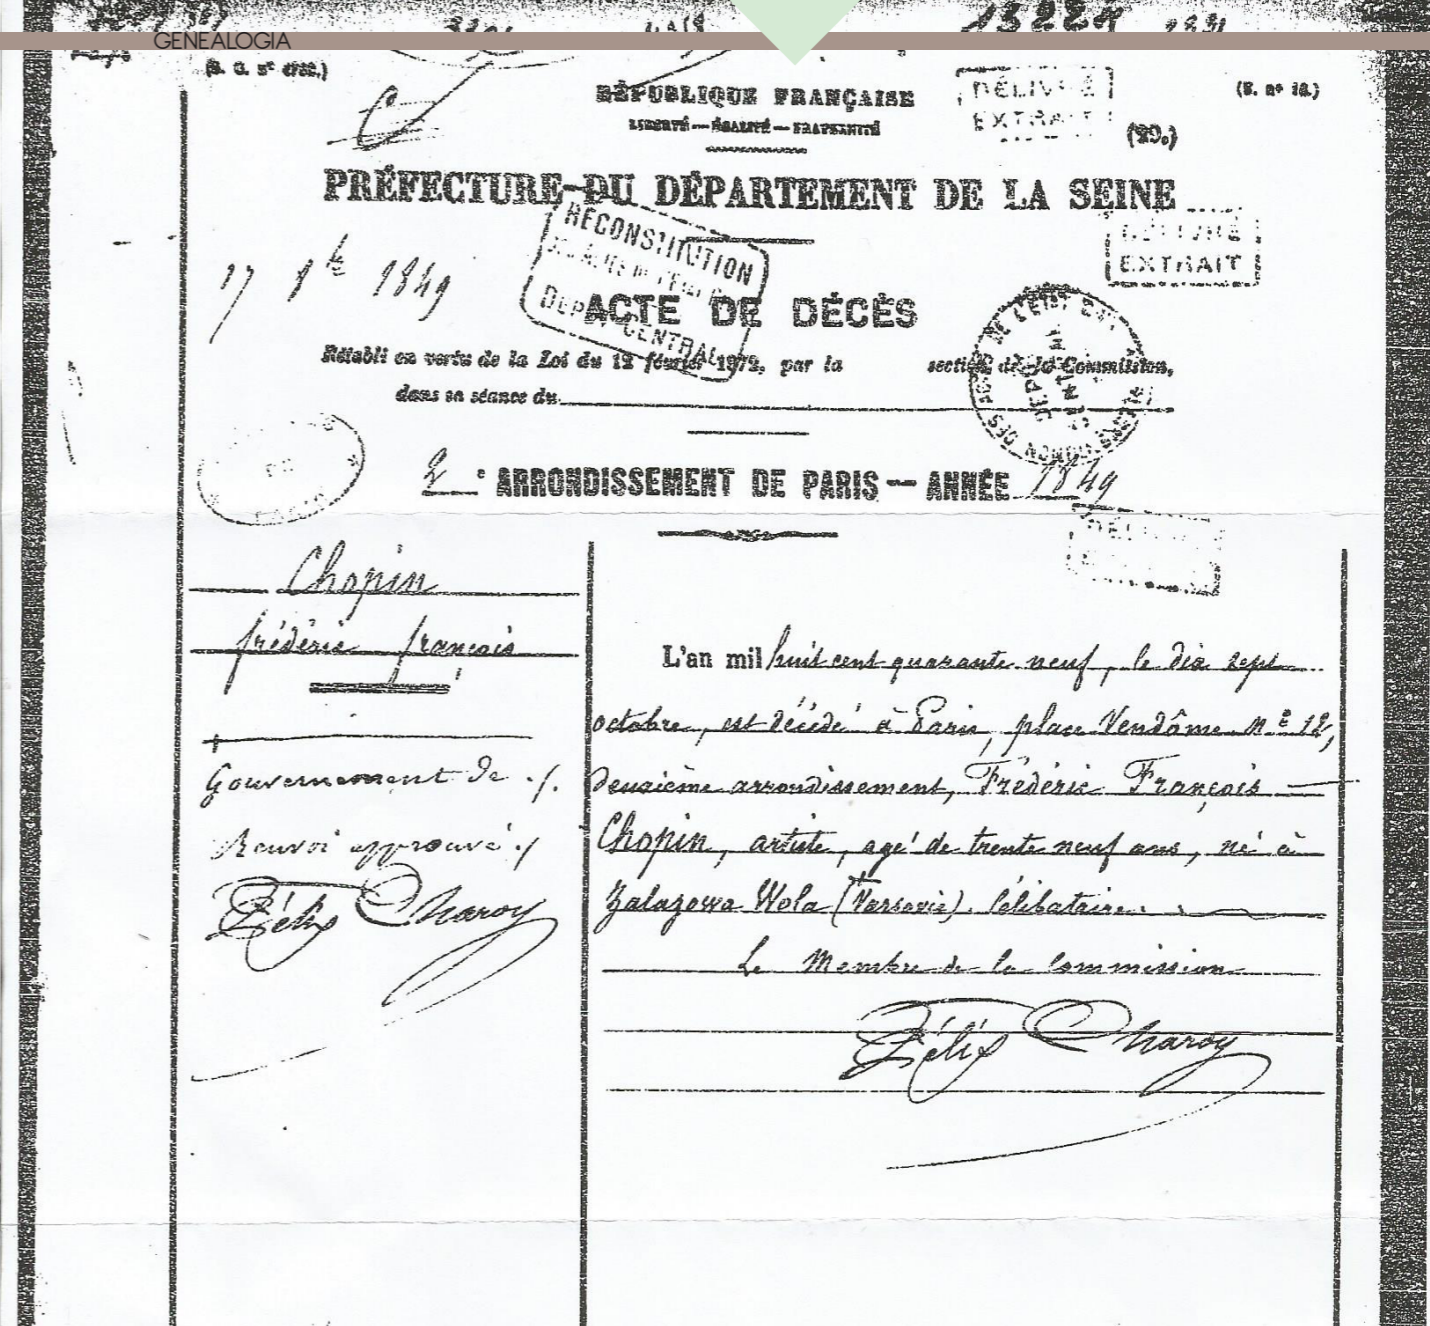 GENEALOGIA
RÉPUBLIQUE FRANÇAISE
LIBERTÉ — ÉGALITÉ — FRATERNITÉ
DÉLIVRÉ
EXTRAIT
(29.)
PRÉFECTURE DU DÉPARTEMENT DE LA SEINE
RECONSTITUTION
DÉPÔT CENTRAL
DÉLIVRÉ
EXTRAIT
17 8bre 1849
ACTE DE DÉCÈS
Rétabli en vertu de la Loi du 12 février 1872, par la section de la Commission,
dans sa séance du
2e ARRONDISSEMENT DE PARIS — ANNÉE 1849
Chopin
frédéric françois
Gouvernement de ./.
Renvoi approuvé ./
Félix Charoy
L'an mil huit cent quarante neuf, le dix sept
octobre, est décédé à Paris, place Vendôme nº 12,
deuxième arrondissement, Frédéric François
Chopin, artiste, agé de trente neuf ans, né à
Zalazowa Wola (Varsovie). Célibataire.
Le Membre de la Commission
Félix Charoy